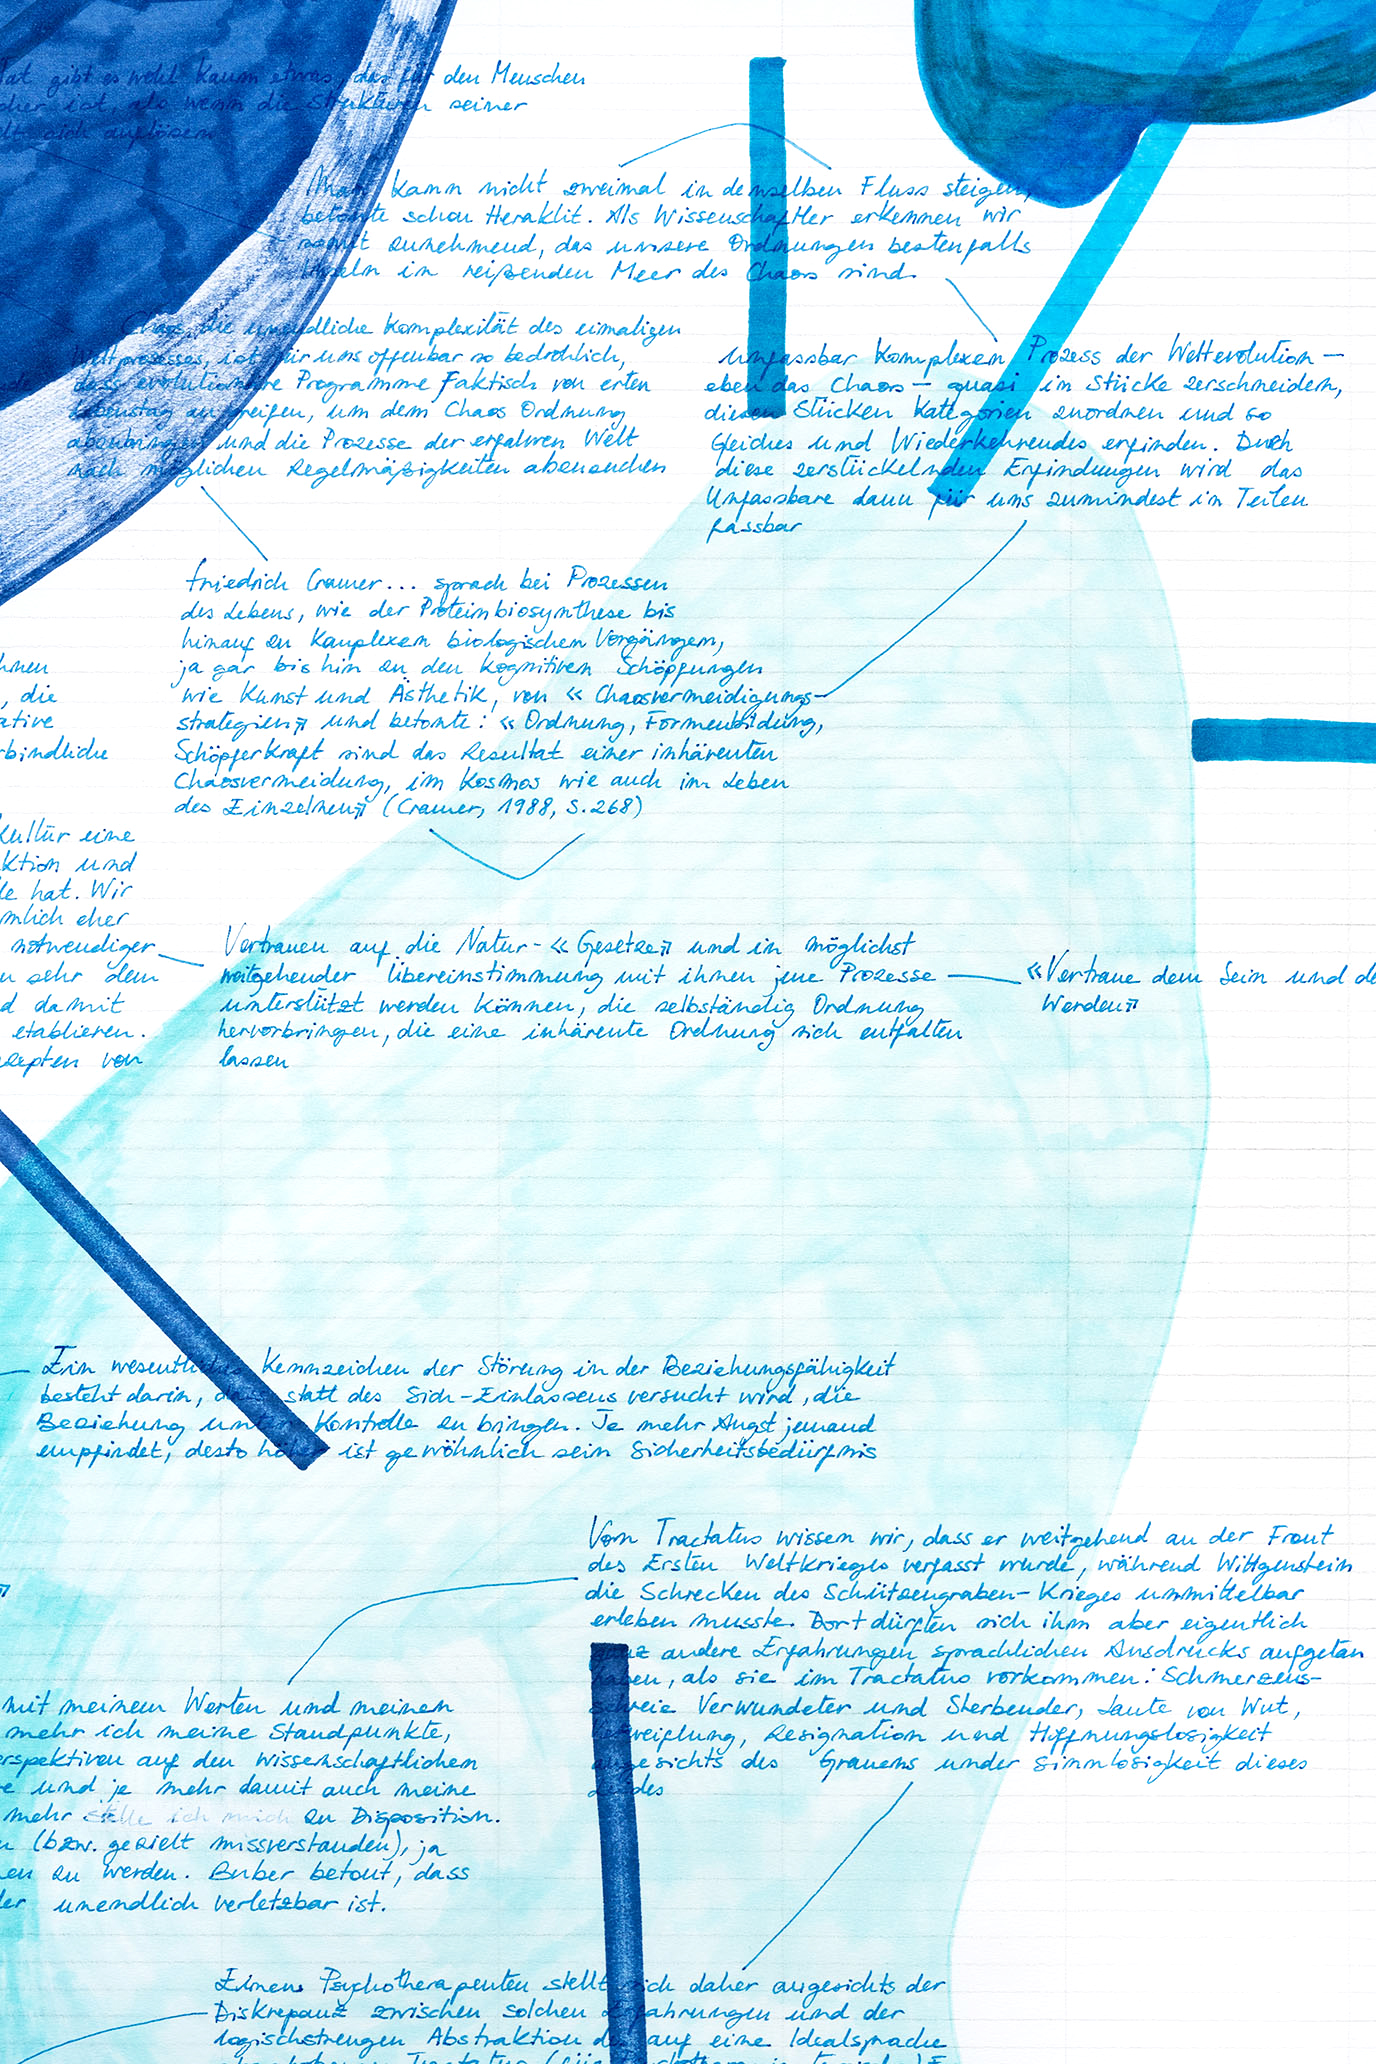 Tat gibt es wohl kaum etwas, das für den Menschen
cher ist, als wenn die Strukturen seiner
elt sich auflösen
Man kann nicht zweimal in denselben Fluss steigen,
betonte schon Heraklit. Als Wissenschaftler erkennen wir
somit zunehmend, das unsere Ordnungen bestenfalls
Inseln im reißenden Meer des Chaos sind.
Chaos, die unendliche Komplexität des eimaligen
Weltprozesses, ist für uns offenbar so bedrohlich,
dass evolutionäre Programme faktisch von erten
Lebenstag an greifen, um dem Chaos Ordnung
abzuringen und die Prozesse der erfahren Welt
nach möglichen Regelmäßigkeiten abzusuchen
Unfassbar komplexen Prozess der Weltevolution —
eben das Chaos — quasi in Stücke zerschneiden,
diesen Stücken Kategorien zuordnen und so
Gleiches und Wiederkehrendes erfinden. Durch
diese zerstückelnden Erfindungen wird das
Unfassbare dann für uns zumindest in Teilen
fassbar
Friedrich Cramer... sprach bei Prozessen
des Lebens, wie der Proteinbiosynthese bis
hinauf zu komplexen biologischen Vorgängen,
ja gar bis hin zu den kognitiven Schöpfungen
wie Kunst und Ästhetik, von « Chaosvermeidigungs-
strategien» und betonte: « Ordnung, Formenbildung,
Schöpferkraft sind das Resultat einer inhärenten
Chaosvermeidung, im Kosmos wie auch im Leben
des Einzelnen» (Cramer, 1988, S.268)
hnen
, die
ative
rbindliche
Kultur eine
ktion und
le hat. Wir
mlich eher
notwendiger
u sehr dem
d damit
etablieren.
zepten von
Vertrauen auf die Natur-« Gesetze» und in möglichst
weitgehender Übereinstimmung mit ihnen jene Prozesse
unterstützt werden können, die selbständig Ordnung
hervorbringen, die eine inhärente Ordnung sich entfalten
lassen
«Vertraue dem Sein und de
Werden»
Ein wesentliches Kennzeichen der Störung in der Beziehungsfähigkeit
besteht darin, dass statt des Sich-Einlassens versucht wird, die
Beziehung unter Kontrolle zu bringen. Je mehr Angst jemand
empfindet, desto höher ist gewöhnlich sein Sicherheitsbedürfnis
Vom Tractatus wissen wir, dass er weitgehend an der Front
des Ersten Weltkrieges verfasst wurde, während Wittgenstein
die Schrecken des Schützengraben-Krieges unmittelbar
erleben musste. Dort dürften sich ihm aber eigentlich
ganz andere Erfahrungen sprachlichen Ausdrucks aufgetan
haben, als sie im Tractatus vorkommen: Schmerzens-
schreie Verwundeter und Sterbender, Laute von Wut,
Verzweiflung, Resignation und Hoffnungslosigkeit
angesichts des Grauens under Sinnlosigkeit dieses
Leides
»
mit meinem Werten und meinen
mehr ich meine Standpunkte,
erspektiven auf den wissenschaftlichen
e und je mehr damit auch meine
mehr stelle ich mich zu Disposition.
n (bzw. gezielt missverstanden), ja
en zu werden. Buber betont, dass
der unendlich verletzbar ist.
Einens Psychotherapeuten stellt sich daher angesichts der
Diskrepanz zwischen solchen Erfahrungen und der
logischstrengen Abstraktion des auf eine Idealsprache